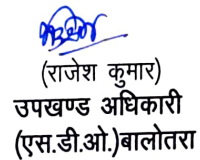 (राजेश कुमार)
उपखण्ड अधिकारी
(एस.डी.ओ.)बालोतरा